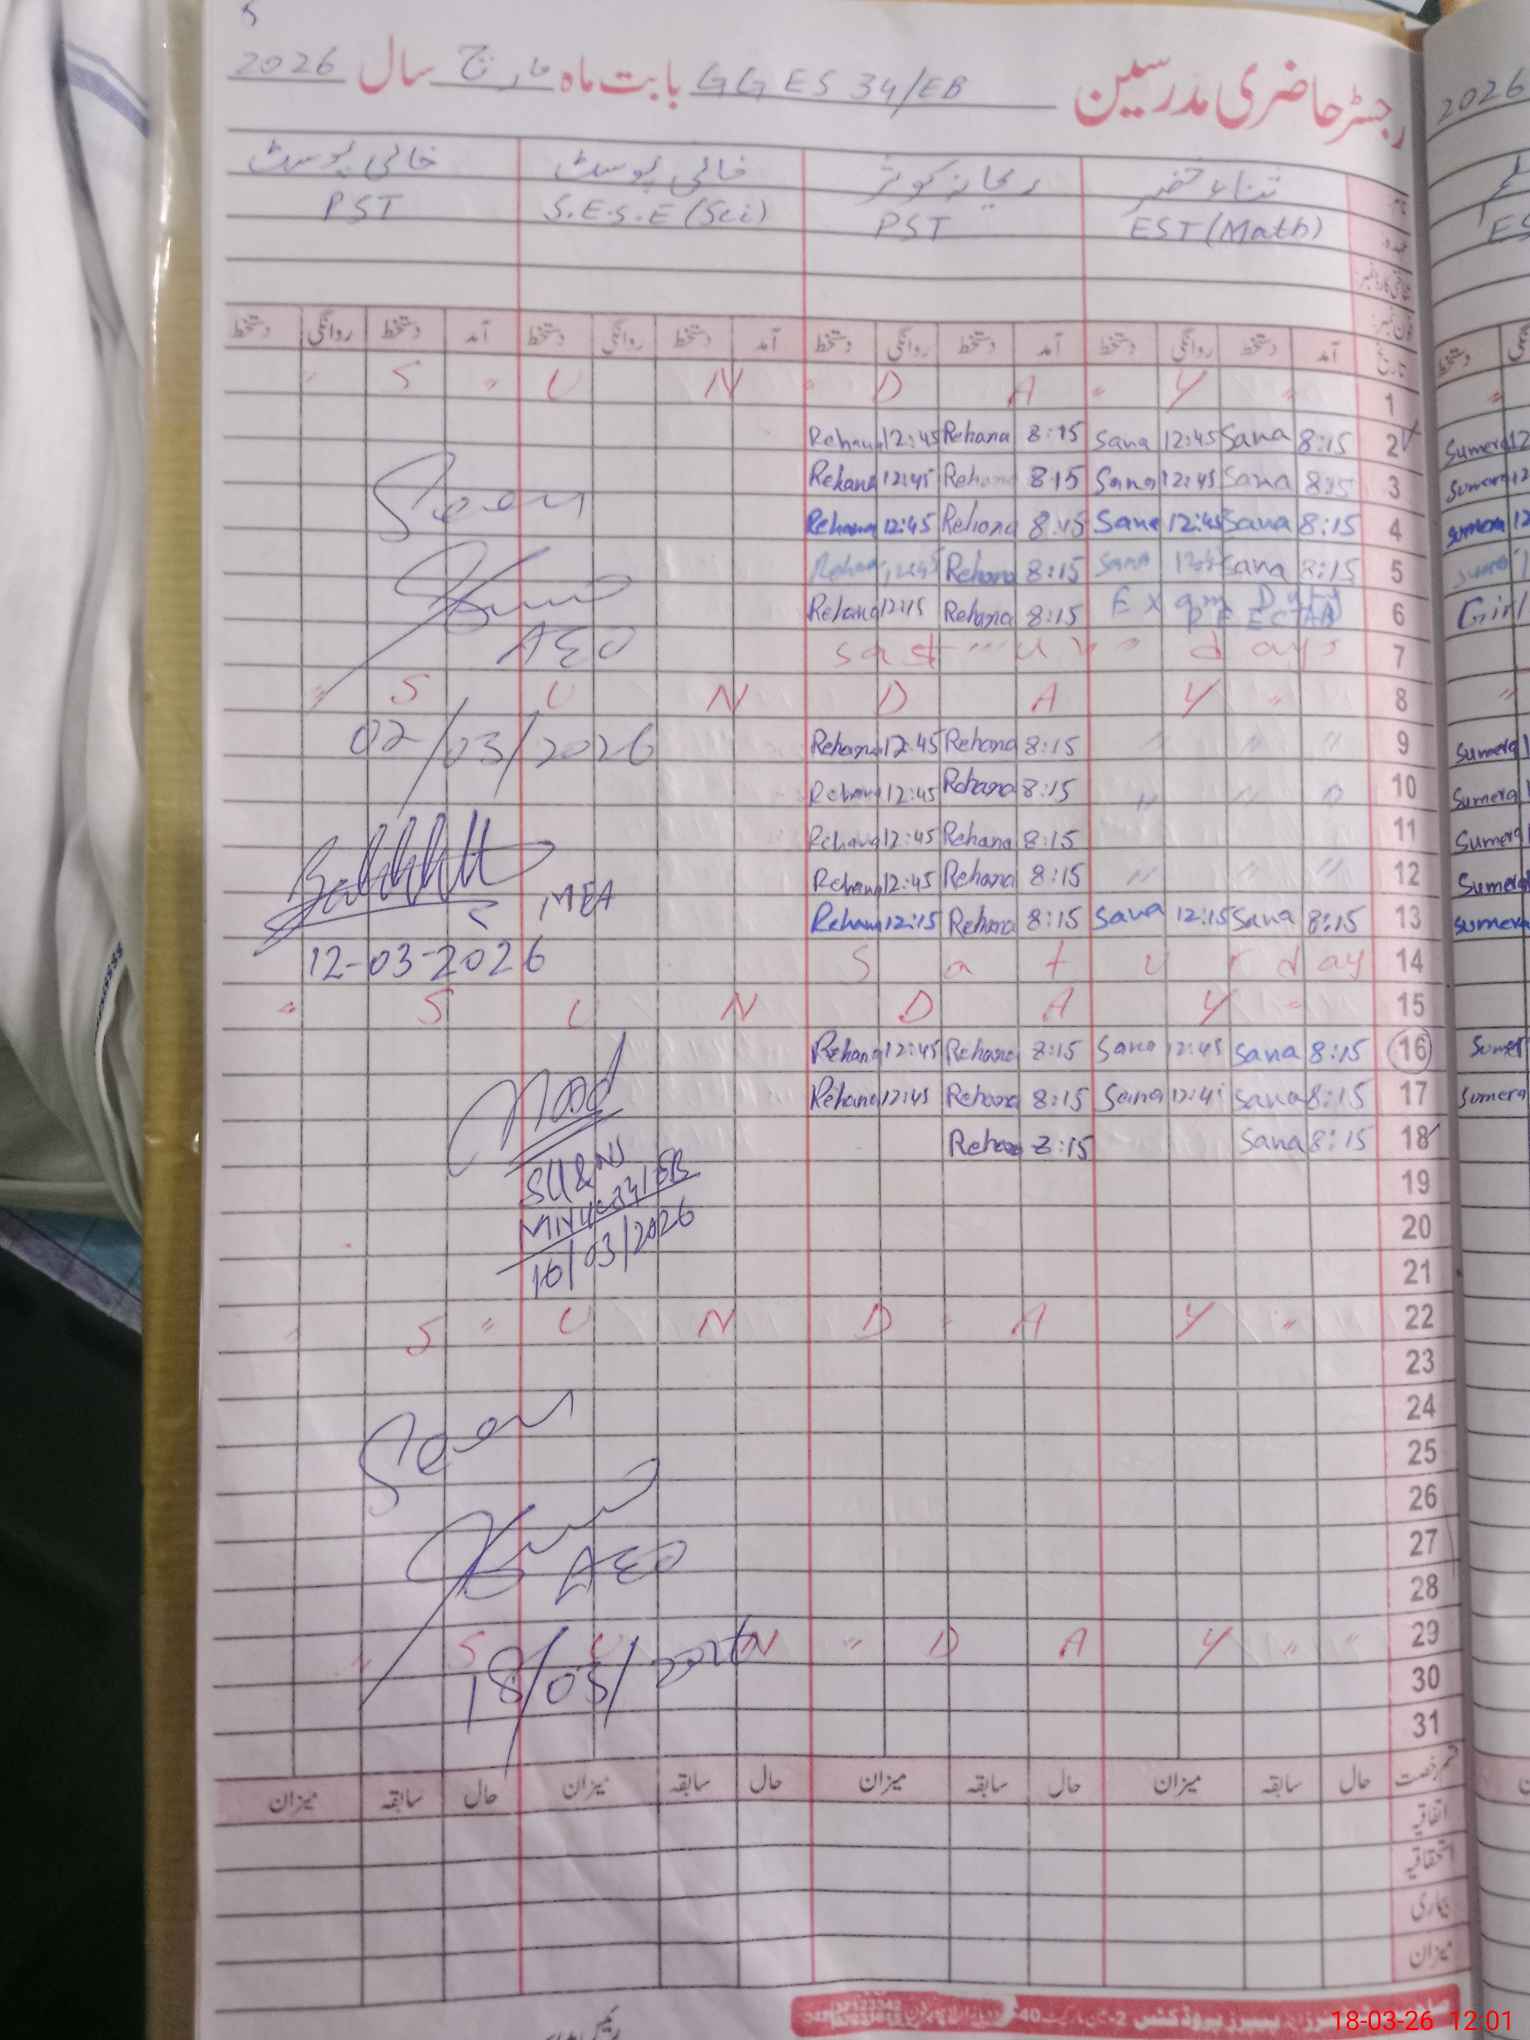 رجسٹر حاضری مدرسین GGES 34/EB بابت ماہ مارچ سال 2026
ثناء خضر ریحانہ کوثر خالی پوسٹ خالی پوسٹ
عہدہ EST (Math) PST S.E.S.E (Sci) PST
تاریخ آمد دستخط روانگی دستخط آمد دستخط روانگی دستخط آمد دستخط روانگی دستخط آمد دستخط روانگی دستخط
" S " U N " D A " Y " 1
Rehana 12:45 Rehana 8:15 Sana 12:45 Sana 8:15 2
Rehana 12:45 Rehana 8:15 Sana 12:45 Sana 8:15 3
Rehana 12:45 Rehana 8:15 Sana 12:45 Sana 8:15 4
Rehana 12:45 Rehana 8:15 Sana 12:45 Sana 8:15 5
Rehana 12:15 Rehana 8:15 Exam Duty 6
AEO
7
" S U N D A Y " 8
02/03/2026
Rehana 12:45 Rehana 8:15 " " " 9
Rehana 12:45 Rehana 8:15 " " " 10
Rehana 12:45 Rehana 8:15 11
Rehana 12:45 Rehana 8:15 " " " 12
MEA
Rehana 12:15 Rehana 8:15 Sana 12:15 Sana 8:15 13
12-03-2026 S a t u r d a y 14
" S U N D A Y " 15
Rehana 12:45 Rehana 8:15 Sana 12:45 Sana 8:15 16
Rehana 12:45 Rehana 8:15 Sana 12:45 Sana 8:15 17
Rehana 8:15 Sana 8:15 18
SH&N
16/03/2026
19
20
21
S " U N D A Y " 22
23
24
Seen
25
26
27
AEO
28
" S U N " D A Y " " 29
18/03/2026
30
31
قسم رخصت حال سابقہ میزان حال سابقہ میزان حال سابقہ میزان حال سابقہ میزان
اتفاقیہ
استحقاقیہ
بیماری
میزان
2026
Sumera 12
Sumera 12
Sumera 12
Girl
Sumera
Sumera
Sumera
Sumera
Sumera
Sumera
Sumera
18-03-26 12:01